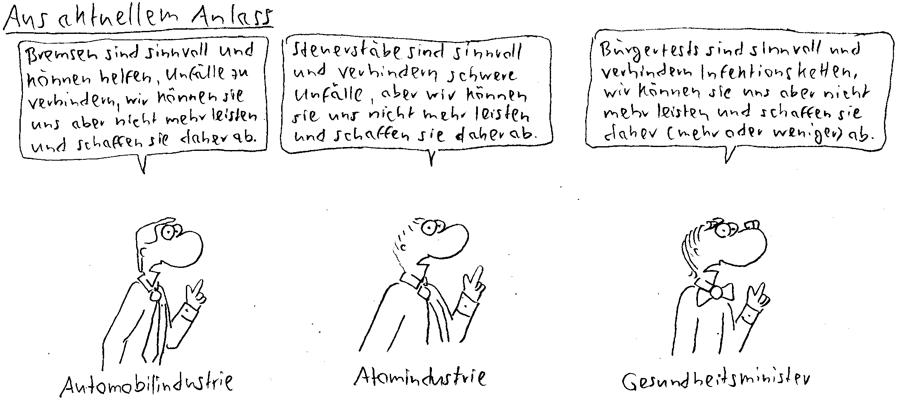 Aus aktuellem Anlass
Bremsen sind sinnvoll und
können helfen, Unfälle zu
verhindern, wir können sie
uns aber nicht mehr leisten
und schaffen sie daher ab.
Steuerstäbe sind sinnvoll
und verhindern schwere
Unfälle, aber wir können
sie uns nicht mehr leisten
und schaffen sie daher ab.
Bürgertests sind sinnvoll und
verhindern Infektionsketten,
wir können sie uns aber nicht
mehr leisten und schaffen sie
daher (mehr oder weniger) ab.
Automobilindustrie
Atomindustrie
Gesundheitsminister